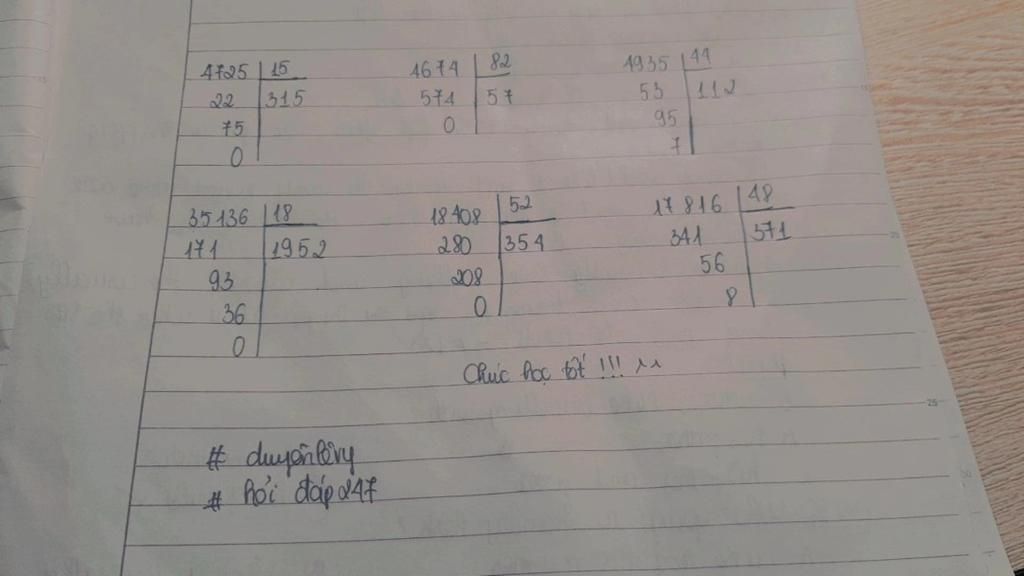 4725 15 4674 82 4935 44
22 315 574 57 53 112
75 0 95
0 7
35136 18 18408 52 17816 48
171 1952 280 354 341 371
93 208 56
36 0 8
0
Chúc học tốt !!! ^^
# 
# hỏi đáp 247